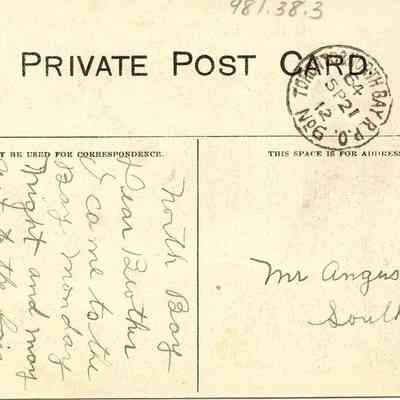 981.38.3
PRIVATE POST CARD
TORONTO & NORTH BAY R.P.O. No 9
64
SP 21
12
Y BE USED FOR CORRESPONDENCE.
THIS SPACE IS FOR ADDRESS
North Bay
Dear Brother
I came to the
Bay monday
night and may
to the fair
Mr Angus
South